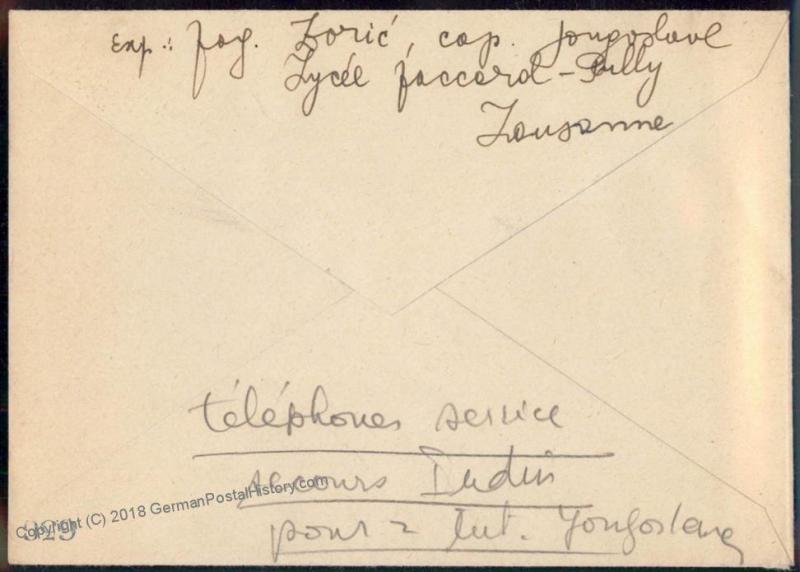 Exp.: Jag. Zorić, cap. yougoslave
Lycée Jaccard - Pully
Lausanne
téléphones service
secours
pour 2 Yougoslaves
Copyright (C) 2018 GermanPostalHistory.com